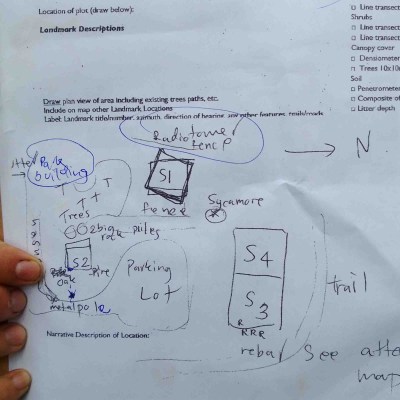 Location of plot (draw below):
Landmark Descriptions
Line transect
Shrubs
Line transect
Line transect
Canopy cover
Densiometer
Trees 10x10
Soil
Penetrometer
Composite of
Litter depth
Draw plan view of area including existing trees paths, etc.
Include on map other Landmark Locations
Label: Landmark title/number, azimuth, direction of bearing, any other features, trails/roads
Radiotower
fence
N
Park
building
S1
T T
T T
fence
Sycamore
Trees
2 big
rock
piles
S2
Pine
Oak
metal pole
Parking
Lot
S4
S3
R
RRR
rebar
trail
See atta
map
Narrative Description of Location: